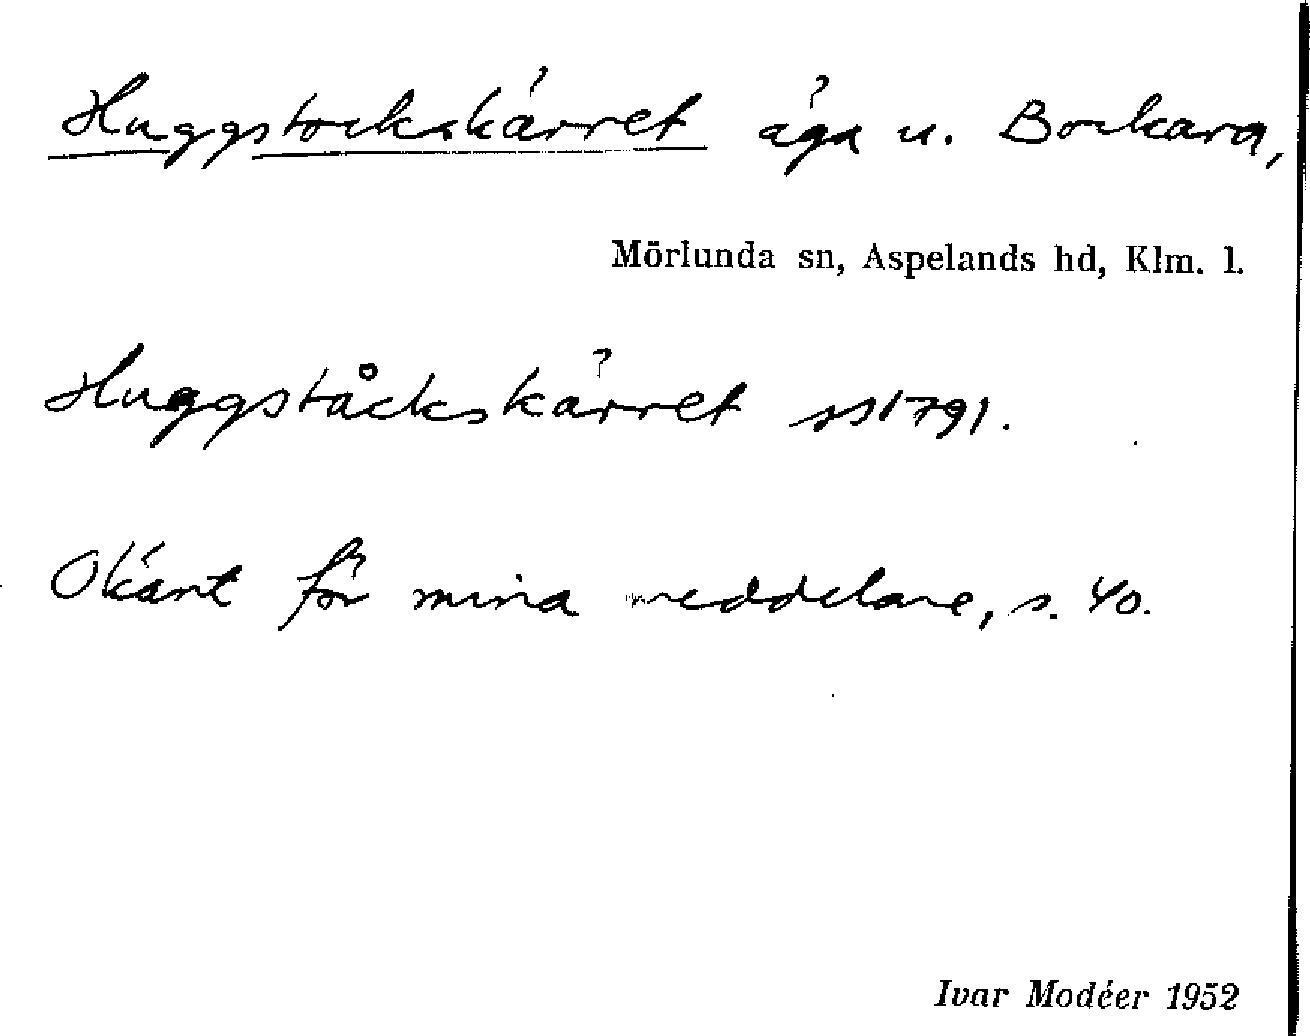 Huggstockskärret äga u. Bockara,
Mörlunda sn, Aspelands hd, Klm. l.
Huggståckskärret ss 1791.
Okänt för mina meddelare, s. 40.
Ivar Modéer 1952